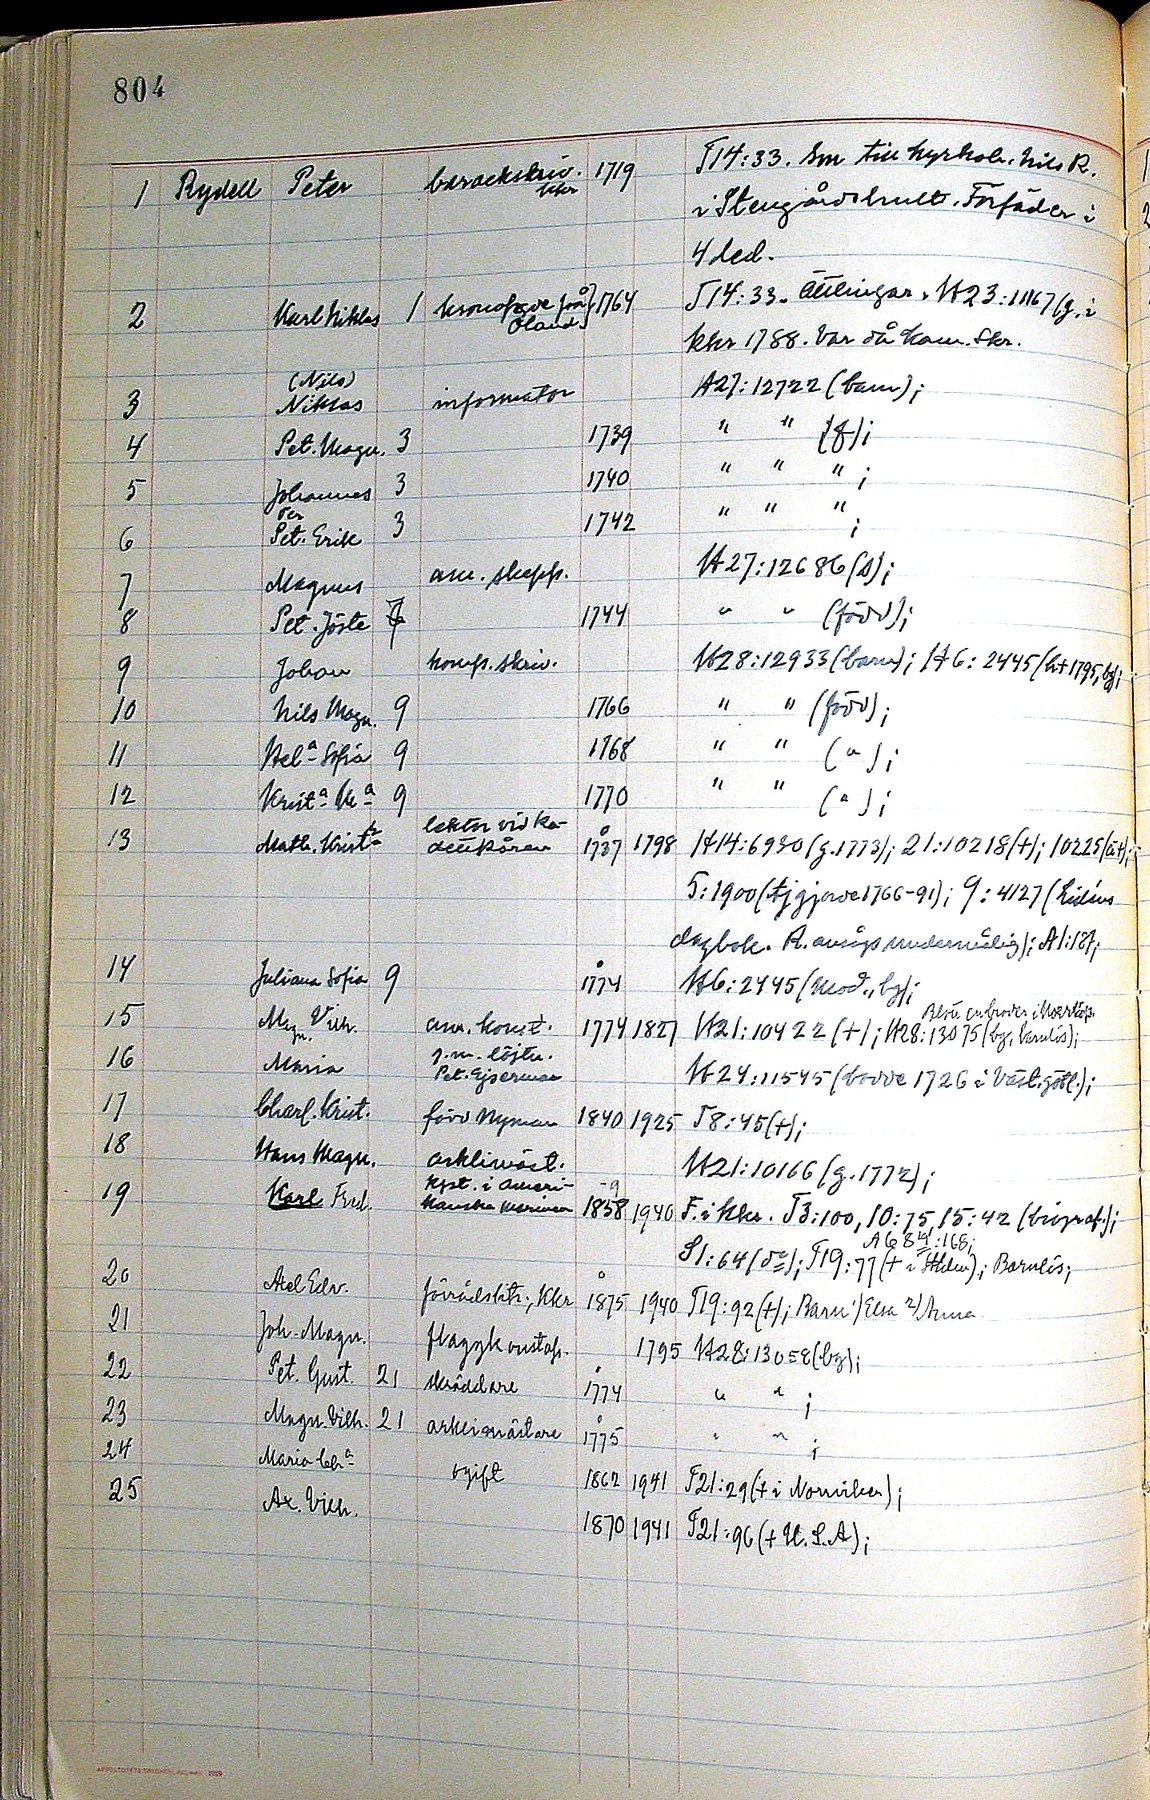 804
1 Rydell Peter barackskriv. kkr 1719 T14:33. Son till kyrkoh. Nils R.
i Stengårdshult. Förfäder i
4 led.
2 Karl Niklas 1 kronofogde på Öland 1764 T14:33. Ättlingar. H23:11167 (g. i
kkr 1788. Var då kam. skr.
3 (Nils) Niklas informator H27:12722 (barn);
4 Pet. Magn. 3 1739 " " (f);
5 Johannes 3 1740 " " " ;
6 Per Pet. Erik 3 1742 " " " ;
7 Magnus am. skepp. H27:12686 (s);
8 Pet. Jöste 7 1744 " " (född);
9 Johan komp. skriv. H28:12933 (barn); H6:2445 (h+1795, bg);
10 Nils Magn. 9 1766 " " (född);
11 Hel-a Sofia 9 1768 " " ( " );
12 Krist-a M-a 9 1770 " " ( " );
13 Math. Krist-r lektor vid Ka-
dettkåren 1737 1798 H14:6930 (g. 1773); 21:10218 (+); 10225
5:1900 (tjgjorde 1766-91); 9:4127 (Lidéns
dagbok. R. ansågs undermålig); A1:187;
14 Juliana Sofia 9 1774 H6:2445 (mod., bg);
15 Magn. Vilh. am. konst. 1774 1827 H21:10422 (+); H28:13075 (bg, barnlös);
16 Maria g.m. löjtn.
Pet. Ejserman H24:11545 (bodde 1726 i Väst.götl.);
17 Charl. Krist. född Nyman 1840 1925 T8:45 (+);
18 Hans Magn. arklimäst. H21:10166 (g. 1772);
19 Karl Fred. kpt. i ameri-
kanska marinen 1858 1940 F. i kkr. T3:100, 10:75, 15:42 (biograf.);
A684:168;
S1:64 (d:o); T19:77 (+ i Sthlm); Barnlös;
20 Axel Edv. förrådsktr., Kkr 1875 1940 T19:92 (+); Barn 1) Elsa 2) Anna
21 Joh. Magn. flaggkonstap. 1795 H28:13058 (bg);
22 Pet. Gust. 21 skräddare 1774 " " ;
23 Magn. Vilh. 21 arklimästare 1775 " " ;
24 Maria Ch-a ogift 1862 1941 T21:29 (+ i Norrviken);
25 Ax. Vilh. 1870 1941 T21:96 (+ U.S.A);